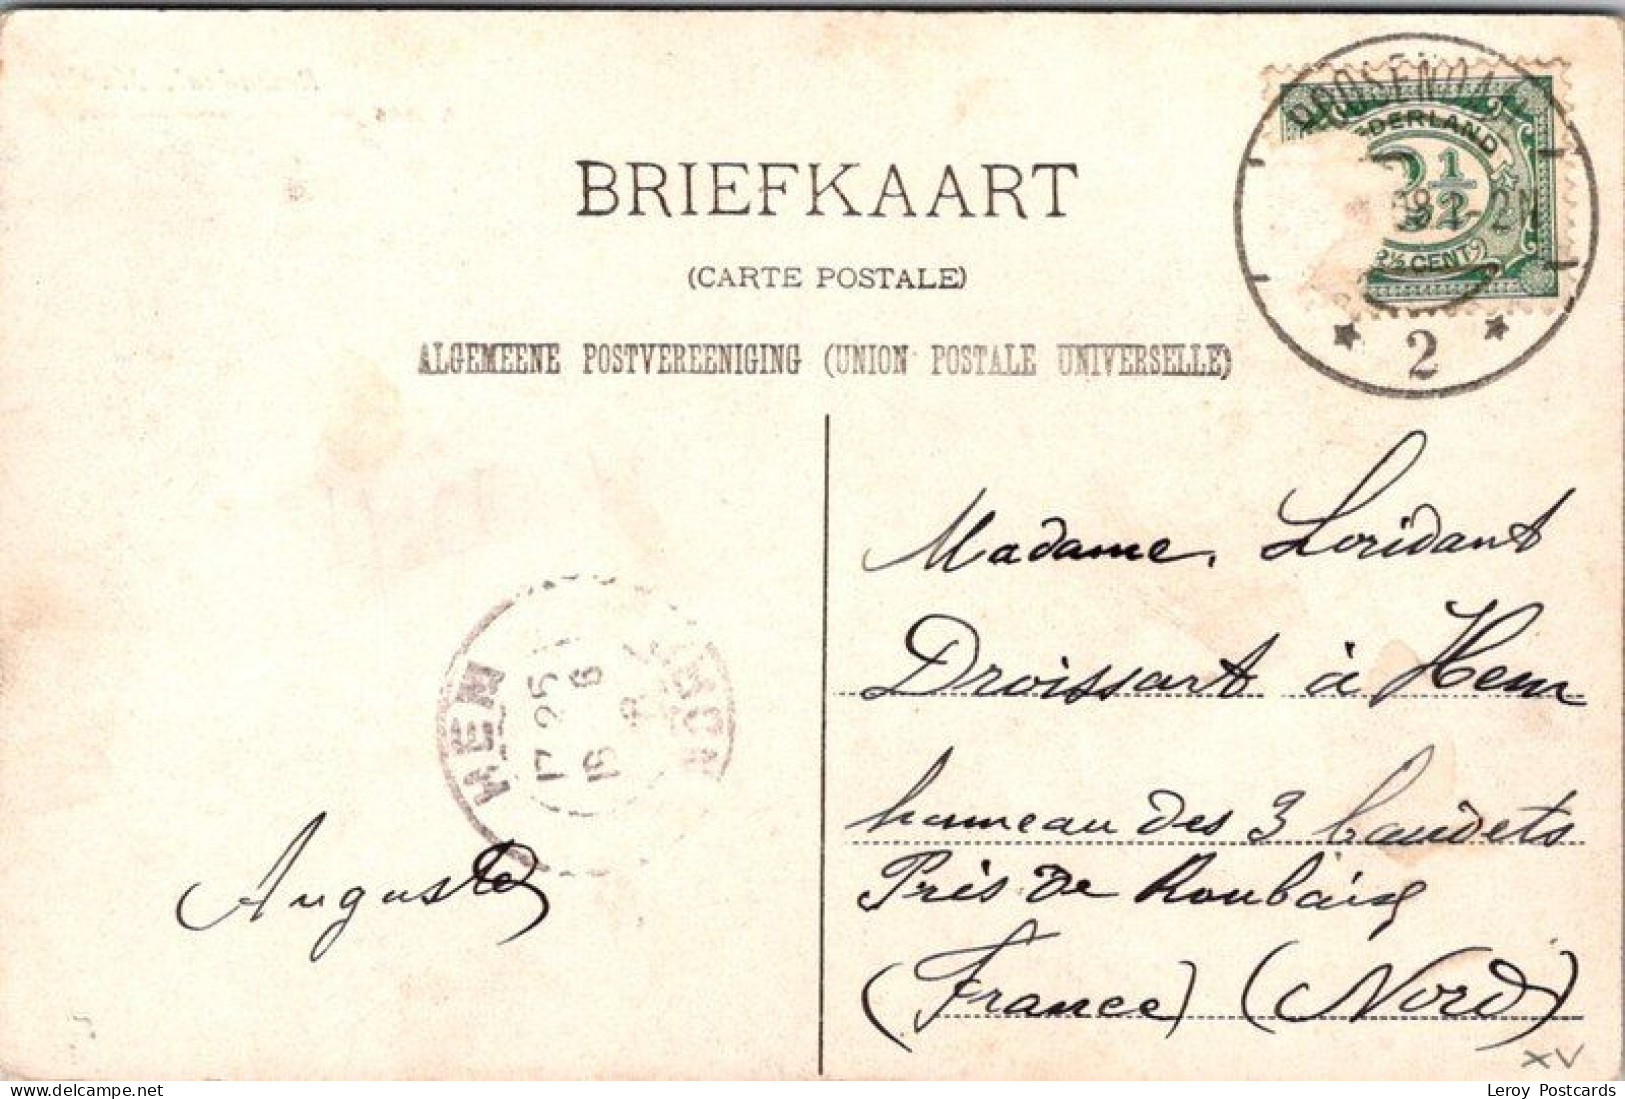 BRIEFKAART
(CARTE POSTALE)
ALGEMEENE POSTVEREENIGING (UNION POSTALE UNIVERSELLE)
ROOSENDAAL
DERLAND
2½ CENT
2
Madame, Loridant
Droissart à Hem
hameau des 3 baudets
Près de Roubaix
(France) (Nord)
HEM
17 25
Auguste
XV
Leroy Postcards